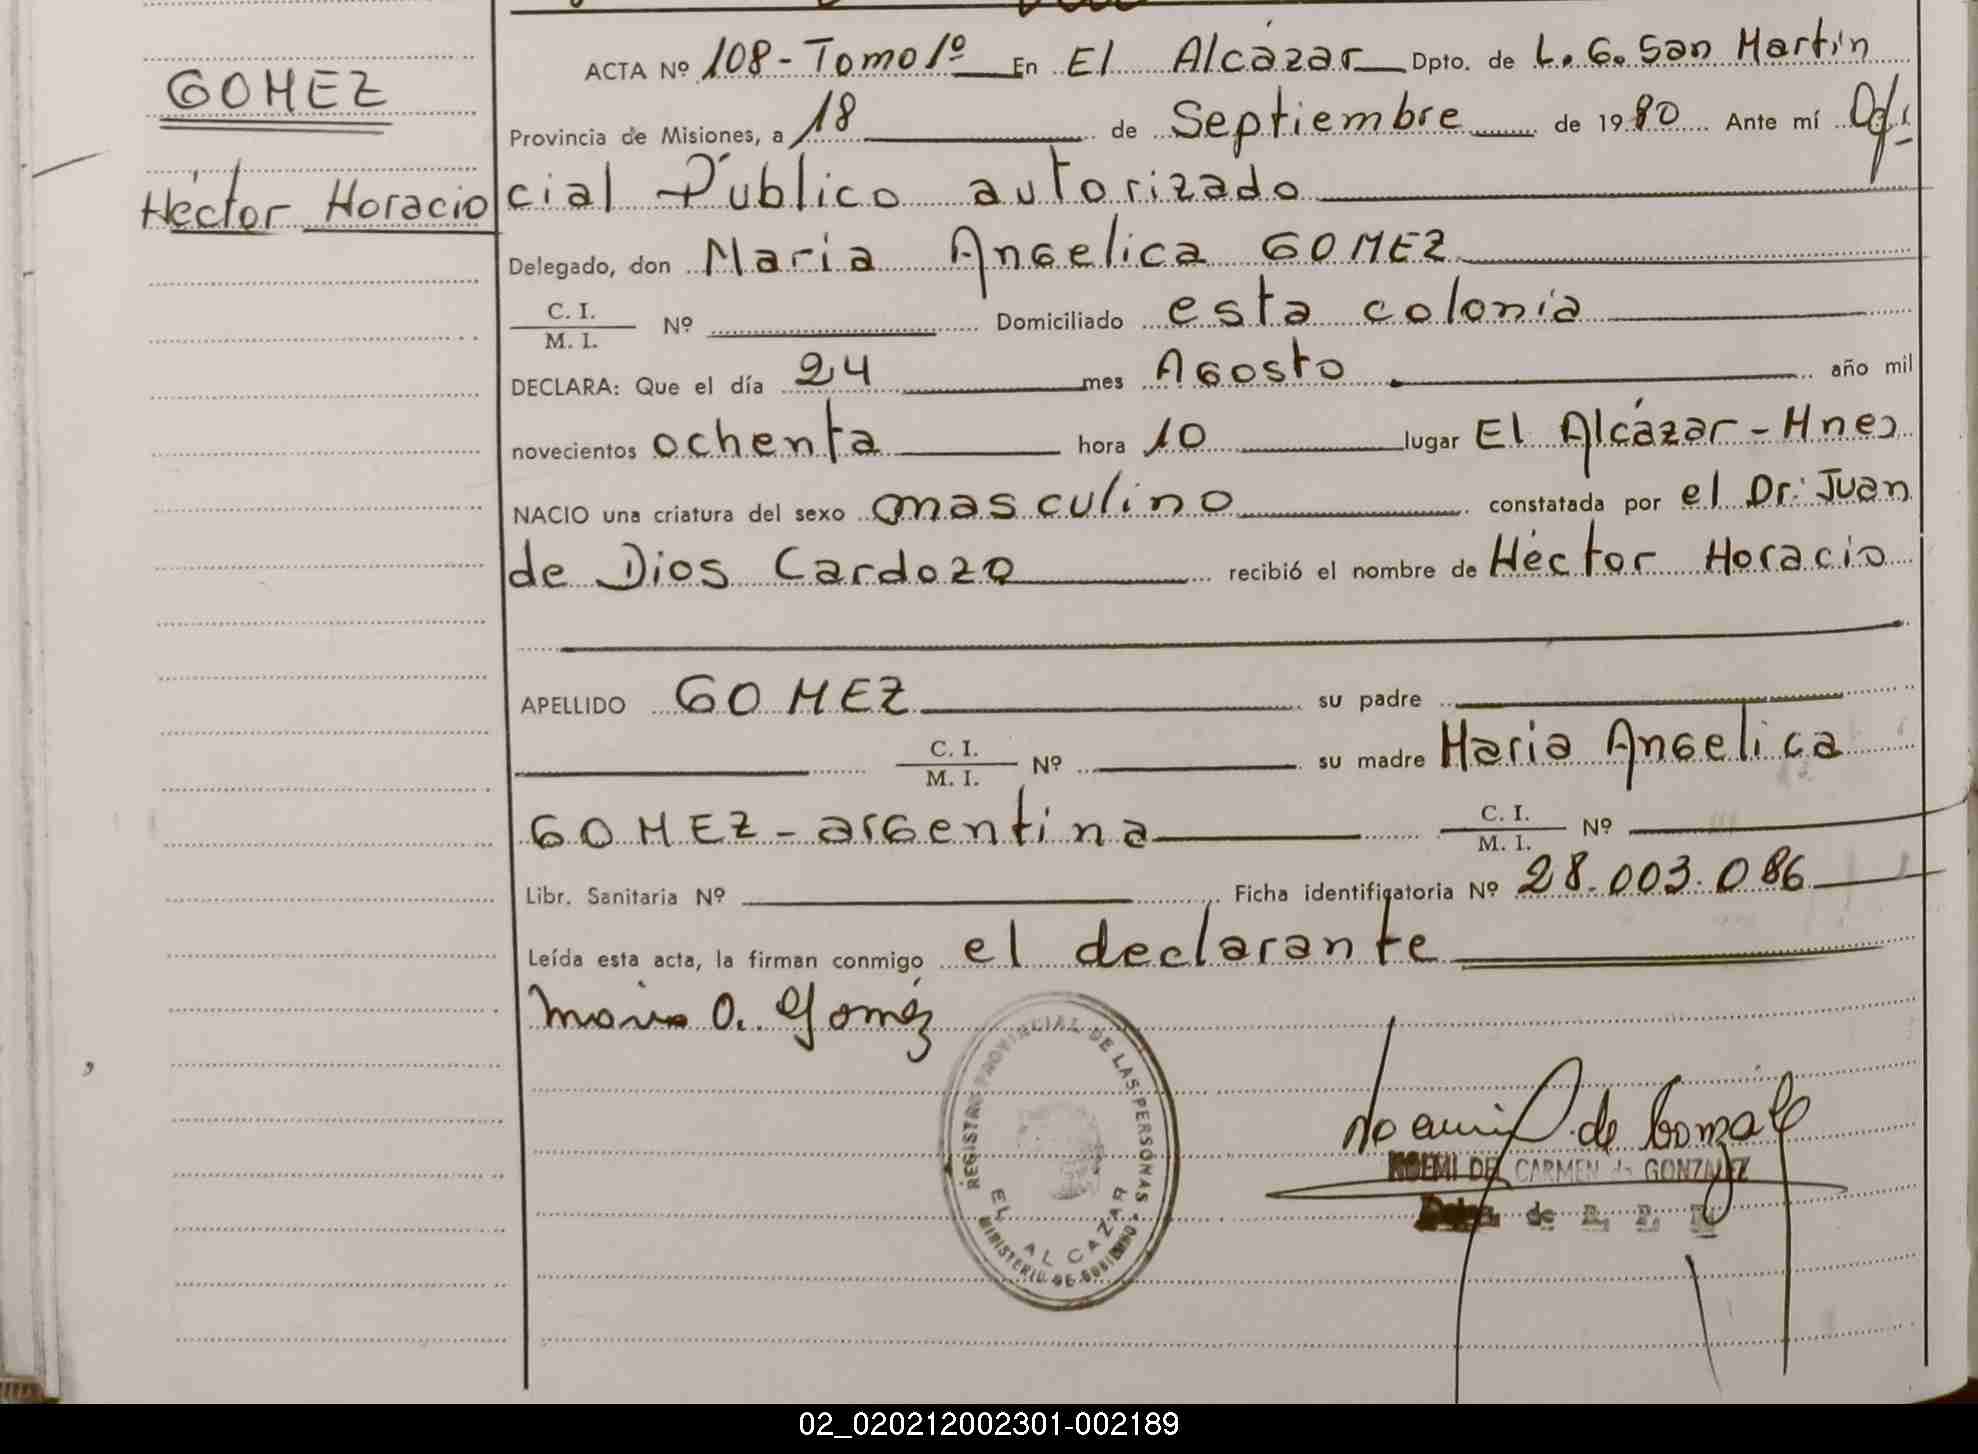 GOMEZ
Héctor Horacio
ACTA Nº 108 - Tomo 1º En El Alcázar Dpto. de L. G. San Martín
Provincia de Misiones, a 18 de Septiembre de 1980 Ante mí Ofi-
cial Público autorizado
Delegado, don Maria Angelica GOMEZ
C. I.
M. I. Nº Domiciliado esta colonia
DECLARA: Que el día 24 mes Agosto año mil
novecientos ochenta hora 10 lugar El Alcázar - Mnes
NACIO una criatura del sexo masculino constatada por el Dr. Juan
de Dios Cardozo recibió el nombre de Héctor Horacio
APELLIDO GOMEZ su padre
C. I.
M. I. Nº su madre Maria Angelica
GOMEZ - argentina C. I.
M. I. Nº
Libr. Sanitaria Nº Ficha identificatoria Nº 28.003.086
Leída esta acta, la firman conmigo el declarante
Goméz
REGISTRO PROVINCIAL DE LAS PERSONAS
EL ALCAZAR
MINISTERIO DE GOBIERNO
de Gonzalez
NOEMI DEL CARMEN de GONZALEZ
02_020212002301-002189